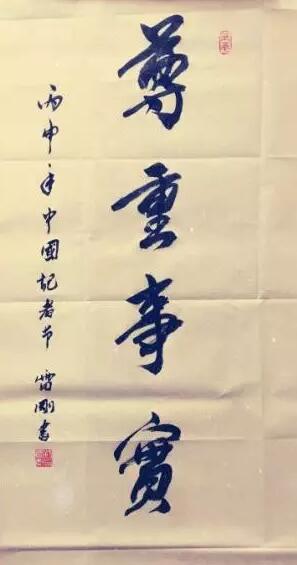 尊重事實
丙申年中國記者节
雷剛書